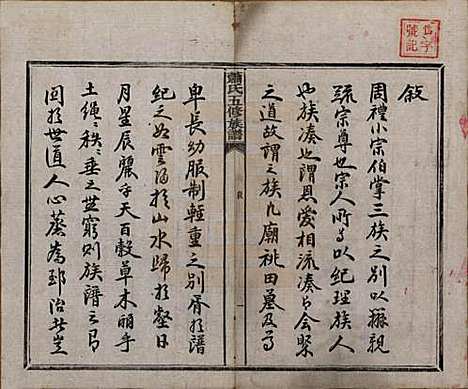 敘
周禮小宗伯掌三族之別以辨親
疏宗尊也宗人所爲以紀理族人
也族湊也謂恩愛相流湊也會聚
之道故謂之族凡廟祧田墓及
蕭氏五修族譜
敘
一
卑長幼服制輕重之別胥於譜
紀之如雲歸於山水歸於壑日
月星辰麗乎天百穀草木麗乎
土繩繩秩秩垂之無窮則族譜之
回於世道人心蒸爲郅治者豈
舊字
號記